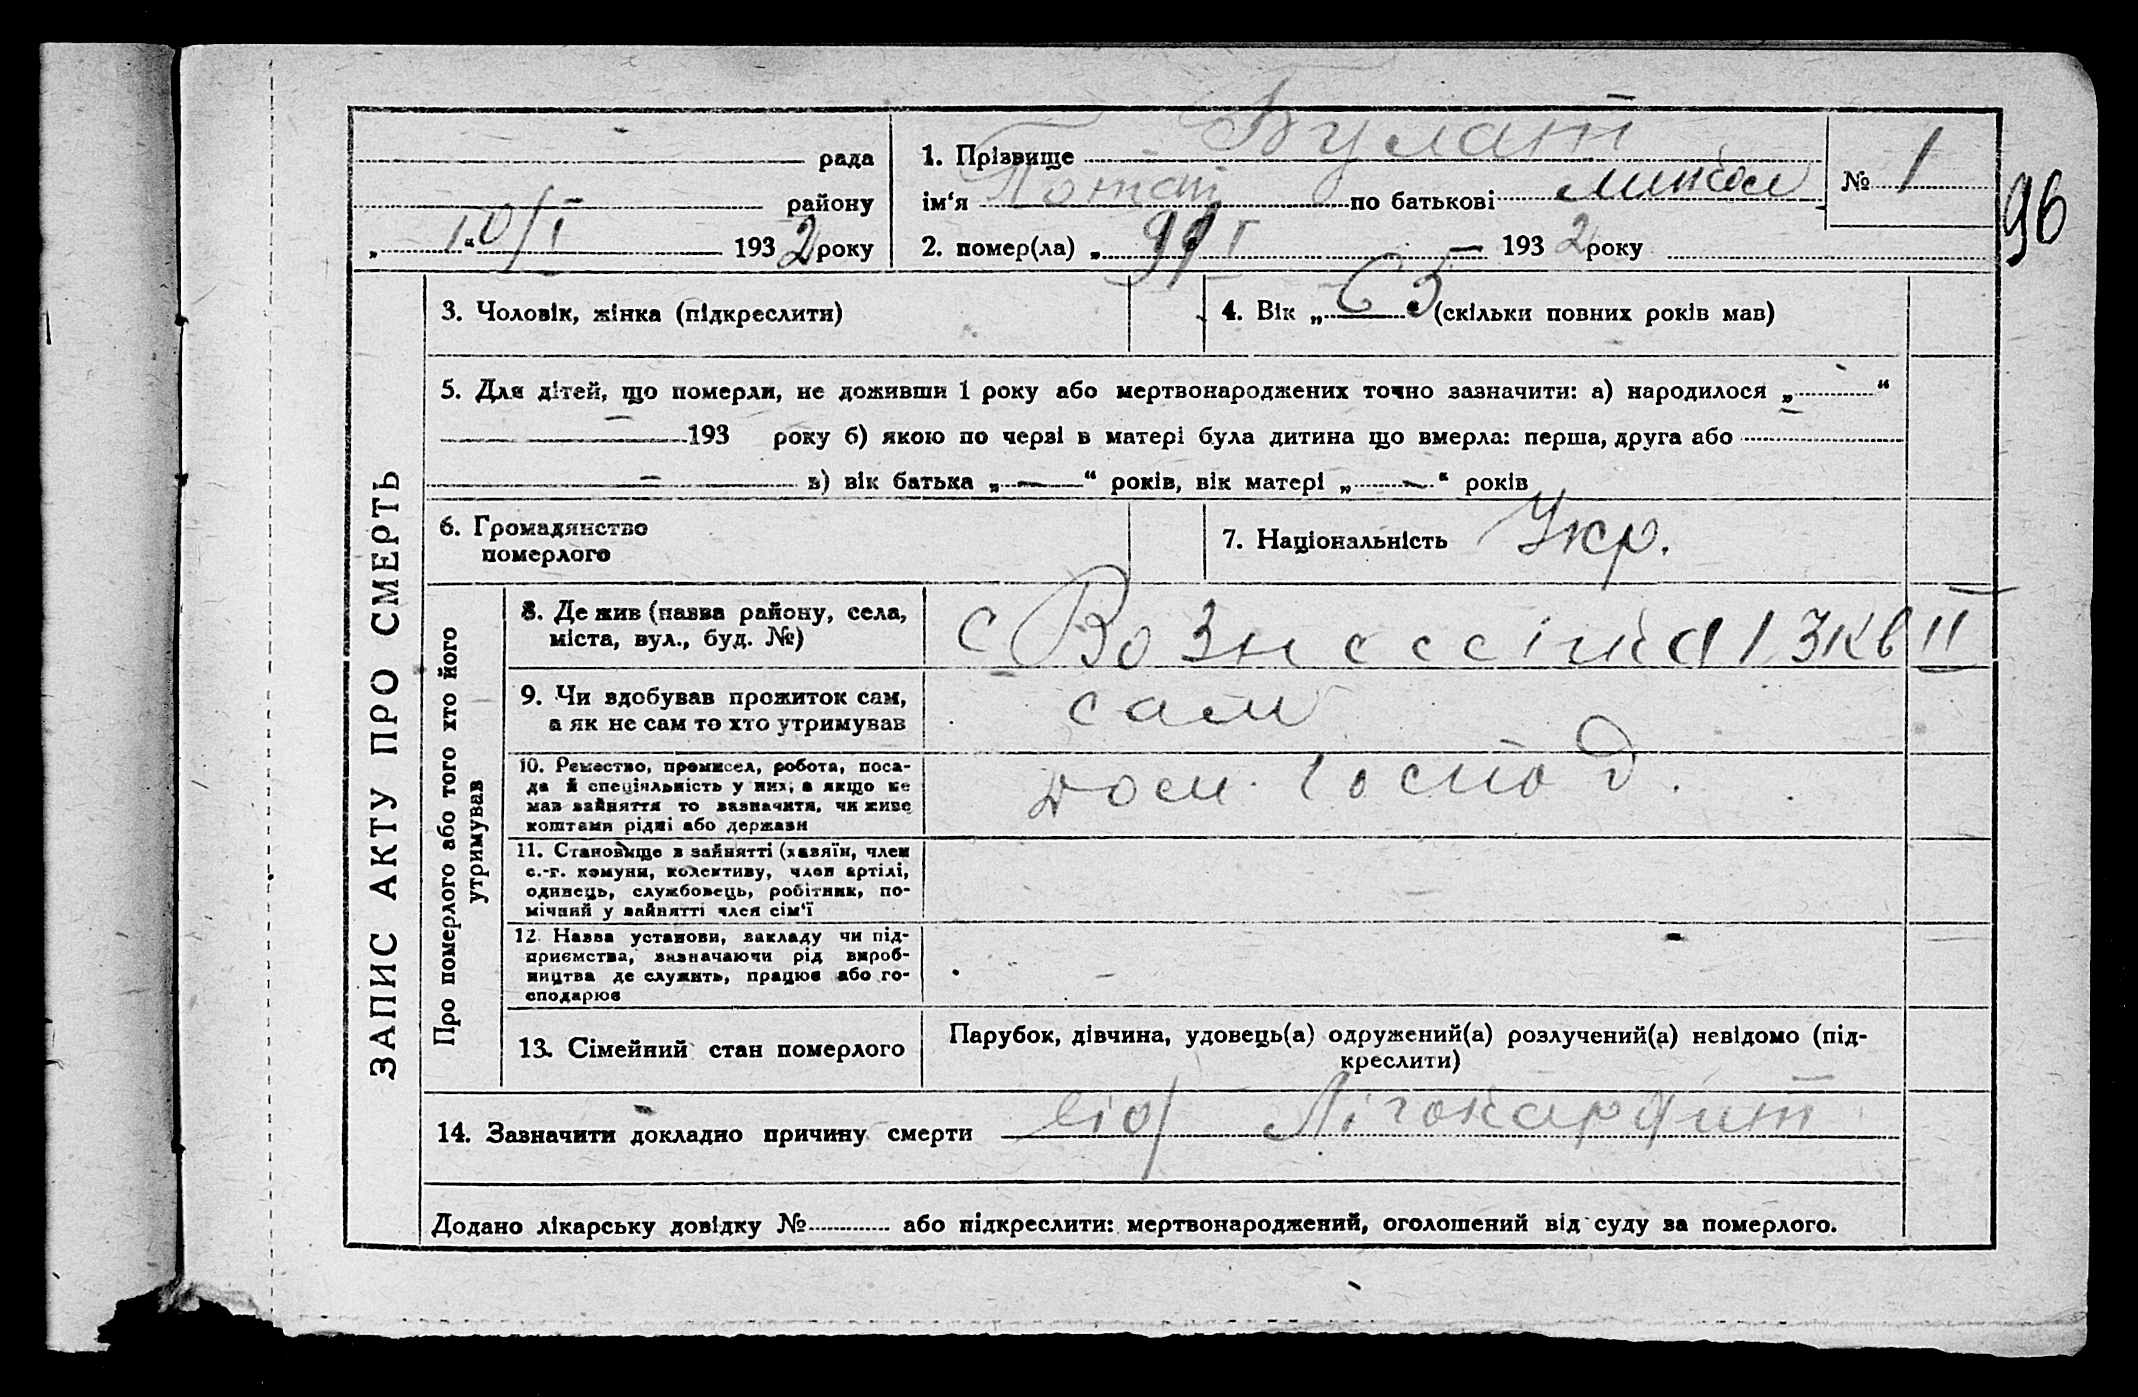 рада
району
„ 10/I “ 1932 року
1. Прізвище Булат
ім‘я Потап по батькові
№ 1
96
2. помер(ла) „ 1932 року
ЗАПИС АКТУ ПРО СМЕРТЬ
3. Чоловік, жінка (підкреслити)
4. Вік „ 65 “ (скільки повних років мав)
5. Для дітей, що померли, не доживши 1 року або мертвонароджених точно зазначити: а) народилося „ — “
— 193 року б) якою по черзі в матері була дитина що вмерла: перша, друга або
— в) вік батька „ — “ років, вік матері „ — “ років
6. Громадянство
померлого
7. Національність Укр.
Про померлого або того хто його
утримував
8. Де жив (назва району, села,
міста, вул., буд. №)
с Вознесенка 13 кв II
9. Чи вдобував прожиток сам,
а як не сам то хто утримував
сам
10. Ремество, промисел, робота, поса-
да й спеціяльність у них; а якщо не
мав зайняття то зазначити, чи живе
коштами рідні або держави
дом. господ.
11. Становище в зайнятті (хазяїн, член
с.-г. комуни, колективу, член артілі,
одинець, службовець, робітник, по-
мічний у зайнятті член сім‘ї
12. Назва установи, закладу чи під-
приємства, зазначаючи рід вироб-
ництва де служить, працює або го-
сподарює
13. Сімейний стан померлого
Парубок, дівчина, удовець(а) одружений(а) розлучений(а) невідомо (під-
креслити)
14. Зазначити докладно причину смерти
Додано лікарську довідку № або підкреслити: мертвонароджений, оголошений від суду за померлого.